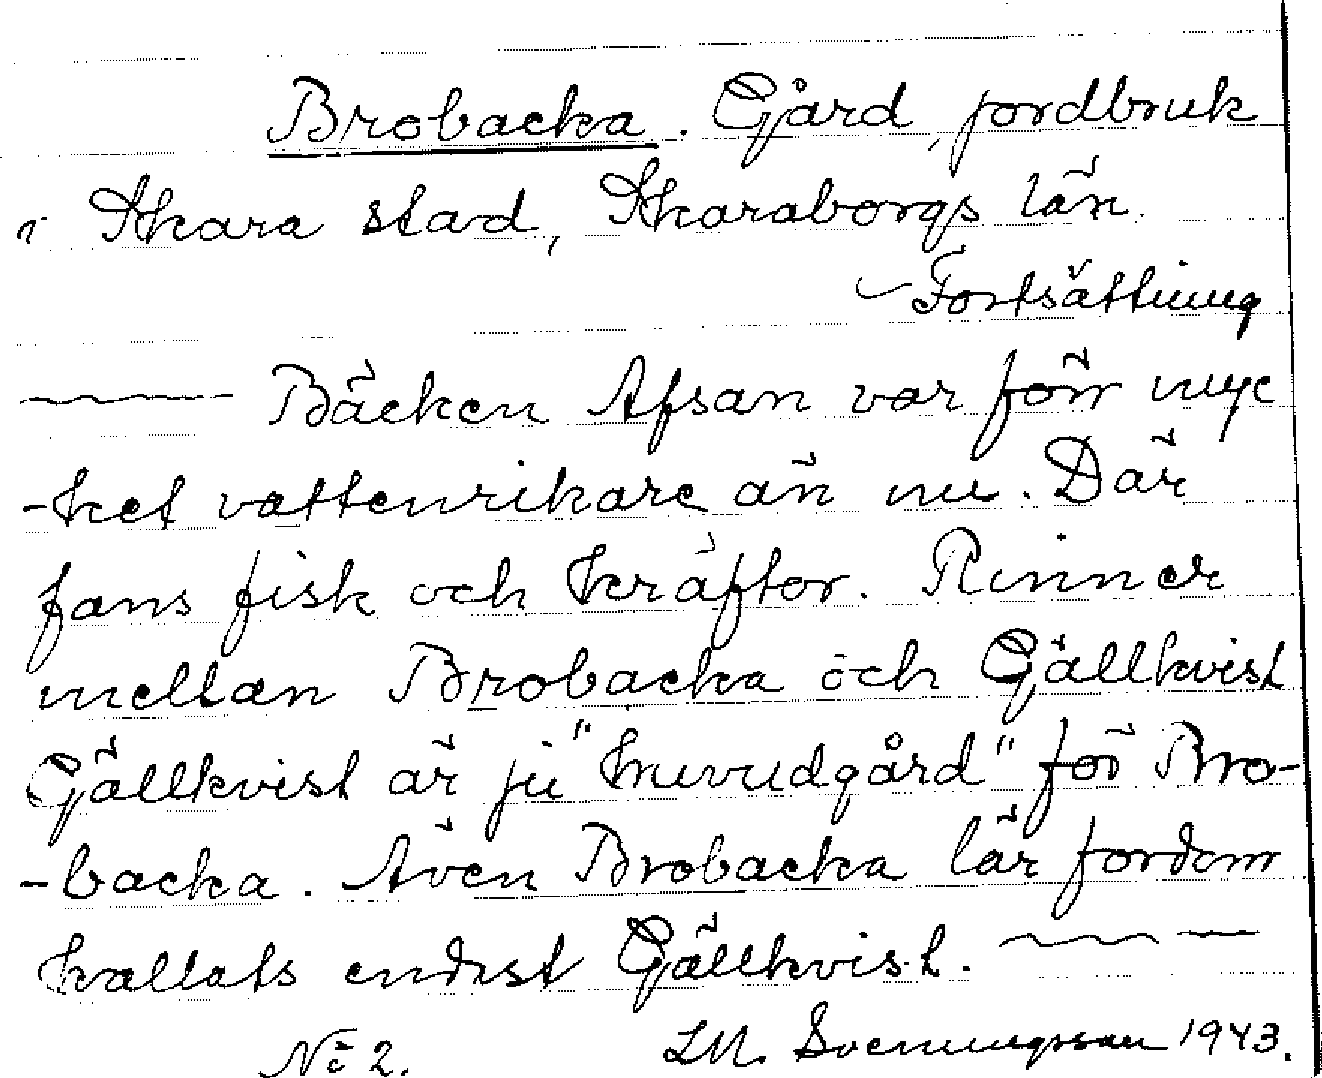 Brobacka. Gård, jordbruk
i Skara stad, Skaraborgs län.
Fortsättning
Bäcken Afsan var förr myc
-ket vattenrikare än nu. Där
fans fisk och kräftor. Rinner
mellan Brobacka och Gällkvist
Gällkvist är ju "huvudgård" för Bro-
-backa. Även Brobacka lär fordom
kallats endast Gällkvist.
No 2. LM. Svenungsson 1943.